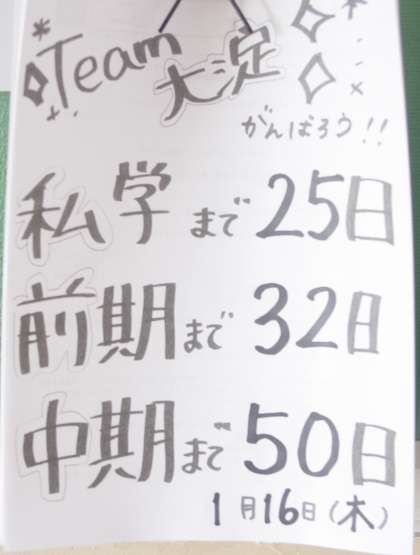 Team大淀
がんばろう!!
私学まで25日
前期まで32日
中期まで50日
1月16日(木)